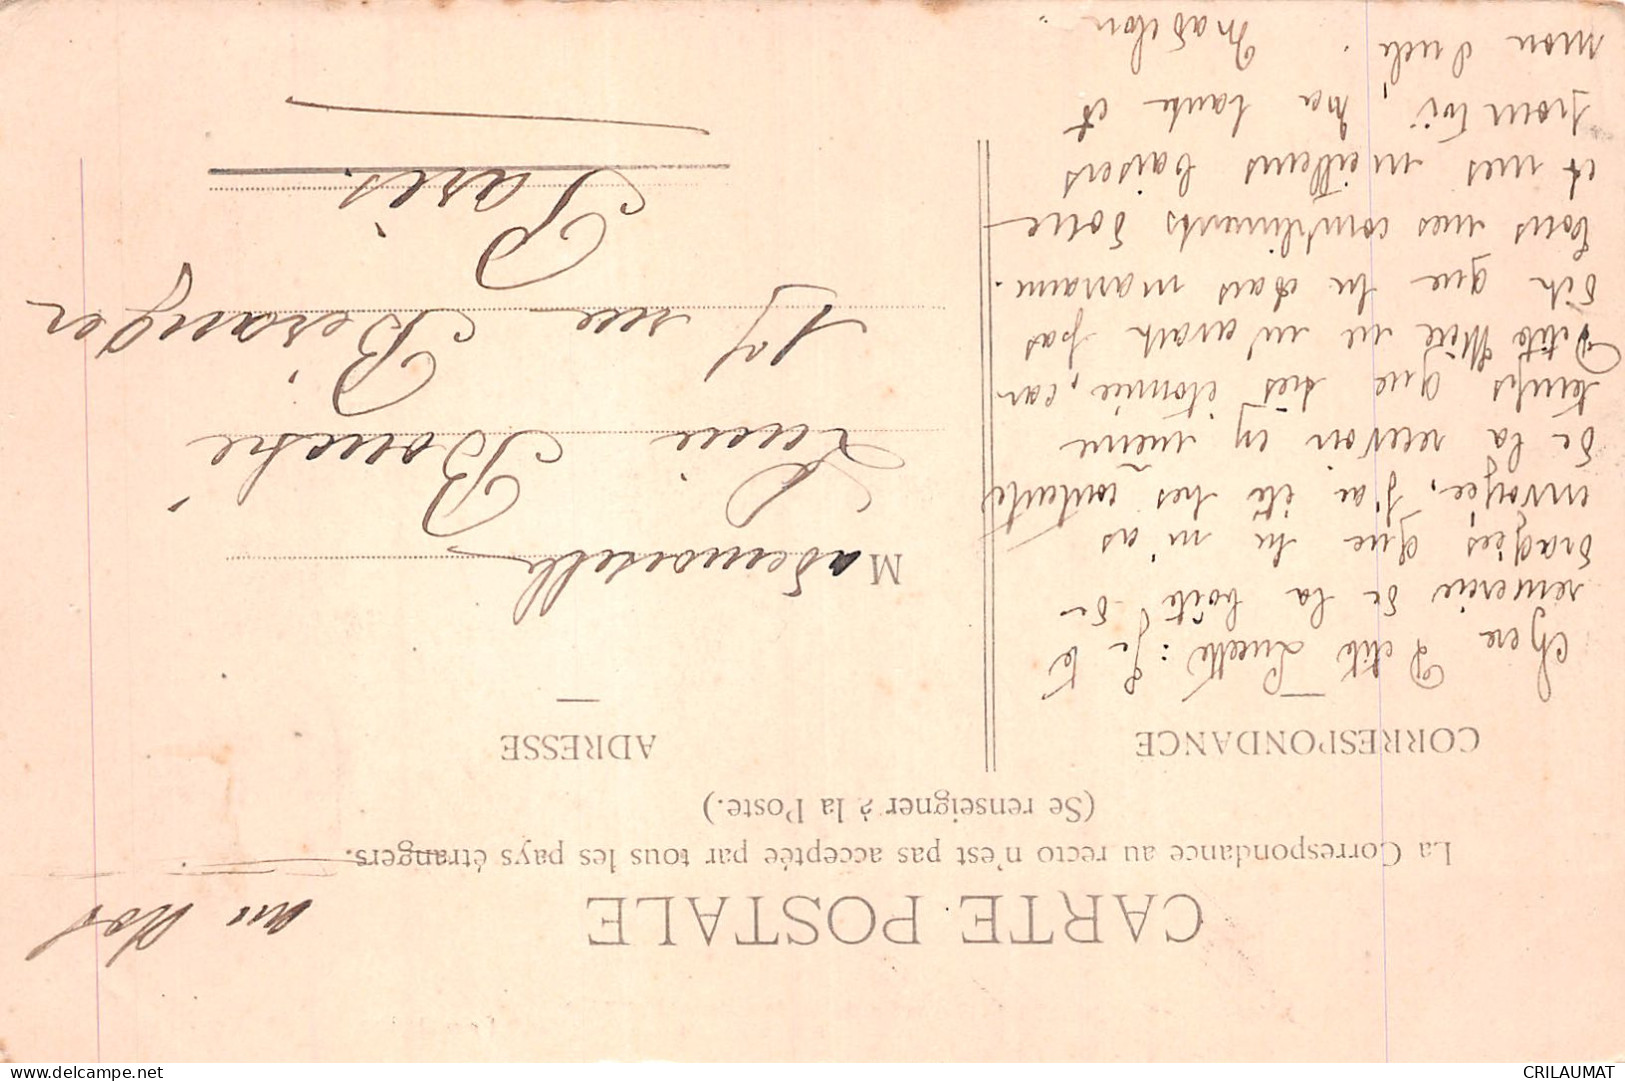 CARTE POSTALE
La Correspondance au recto n'est pas acceptée par tous les pays étrangers.
(Se renseigner à la Poste.)
CORRESPONDANCE
Chere Petite Lucette : Je te
remercie de la boîte de
dragées, que tu m'as
envoyée. J'ai été très contente
de la recevoir en même
temps que très étonnée, car
Petite Mère ne m'avait pas
dit que tu étais marraine.
tous mes compliments donc
et mes meilleurs baisers
pour toi, ma tante et
mon oncle. Madelon
ADRESSE
Mademoiselle
Lucie Bouché
17 rue Béranger
Paris.
www.delcampe.net
CRILAUMAT